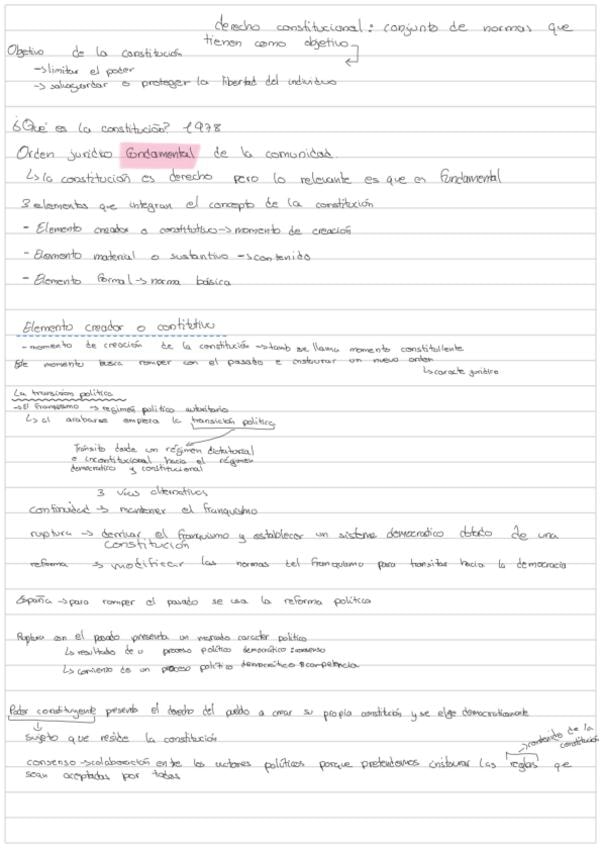 derecho constitucional: conjunto de normas que
tienen como objetivo
Objetivo de la constitución
→ limitar el poder
→ salvaguardar o proteger la libertad del individuo
¿Qué es la constitución? 1978
Orden jurídico fundamental de la comunidad.
↳ la constitución es derecho pero lo relevante es que es fundamental
3 elementos que integran el concepto de la constitución
- Elemento creador o constitutivo → momento de creación
- Elemento material o sustantivo → contenido
- Elemento formal → norma básica
Elemento creador o contitutivo
- momento de creación de la constitución → tamb se llama momento constituyente
Este momento busca romper con el pasado e instaurar un nuevo orden
↳ caracte jurídico
La transición política
→ El franquismo → regimen politico autoritario
↳ al acabarse empieza la transición política
Tránsito desde un régimen dictatorial
e inconstitucional hacia el régimen
democratico y constitucional
3 vías alternativas
continuidad → mantener el franquismo
ruptura → derribar el franquismo y establecer un sistema democratico dotado de una
constitución
reforma → modificar las normas del franquismo para transitar hacia la democracia
España → para romper el pasado se usa la reforma política
Ruptura con el pasado presenta un marcado caracter político
↳ resultado de u proceso político democrático: consenso
↳ comienzo de un proceso político democrático: competencia
Poder constituyente presenta el derecho del pueblo a crear su propia constitución y se elige democraticamente
↓
sujeto que reside la constitución
→ contenido de la
constitución
consenso → colaboración entre los actores políticos porque pretendemos instaurar las reglas que
sean aceptadas por todas